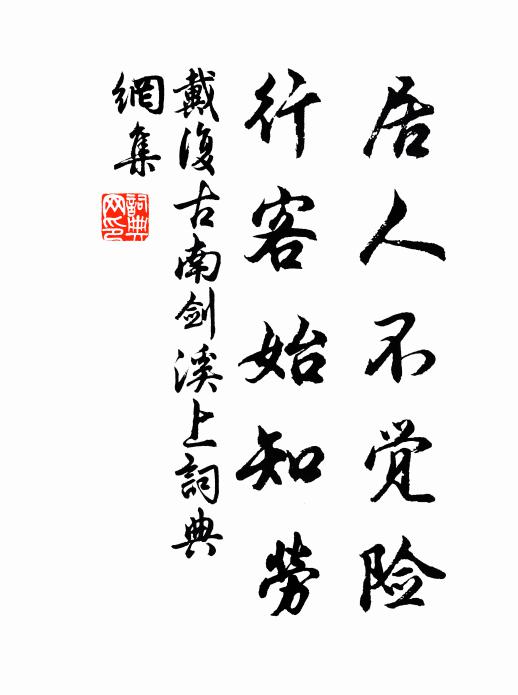 居人不觉险
行客始知劳
戴復古南剑溪上詞典
網集
詞典
网印